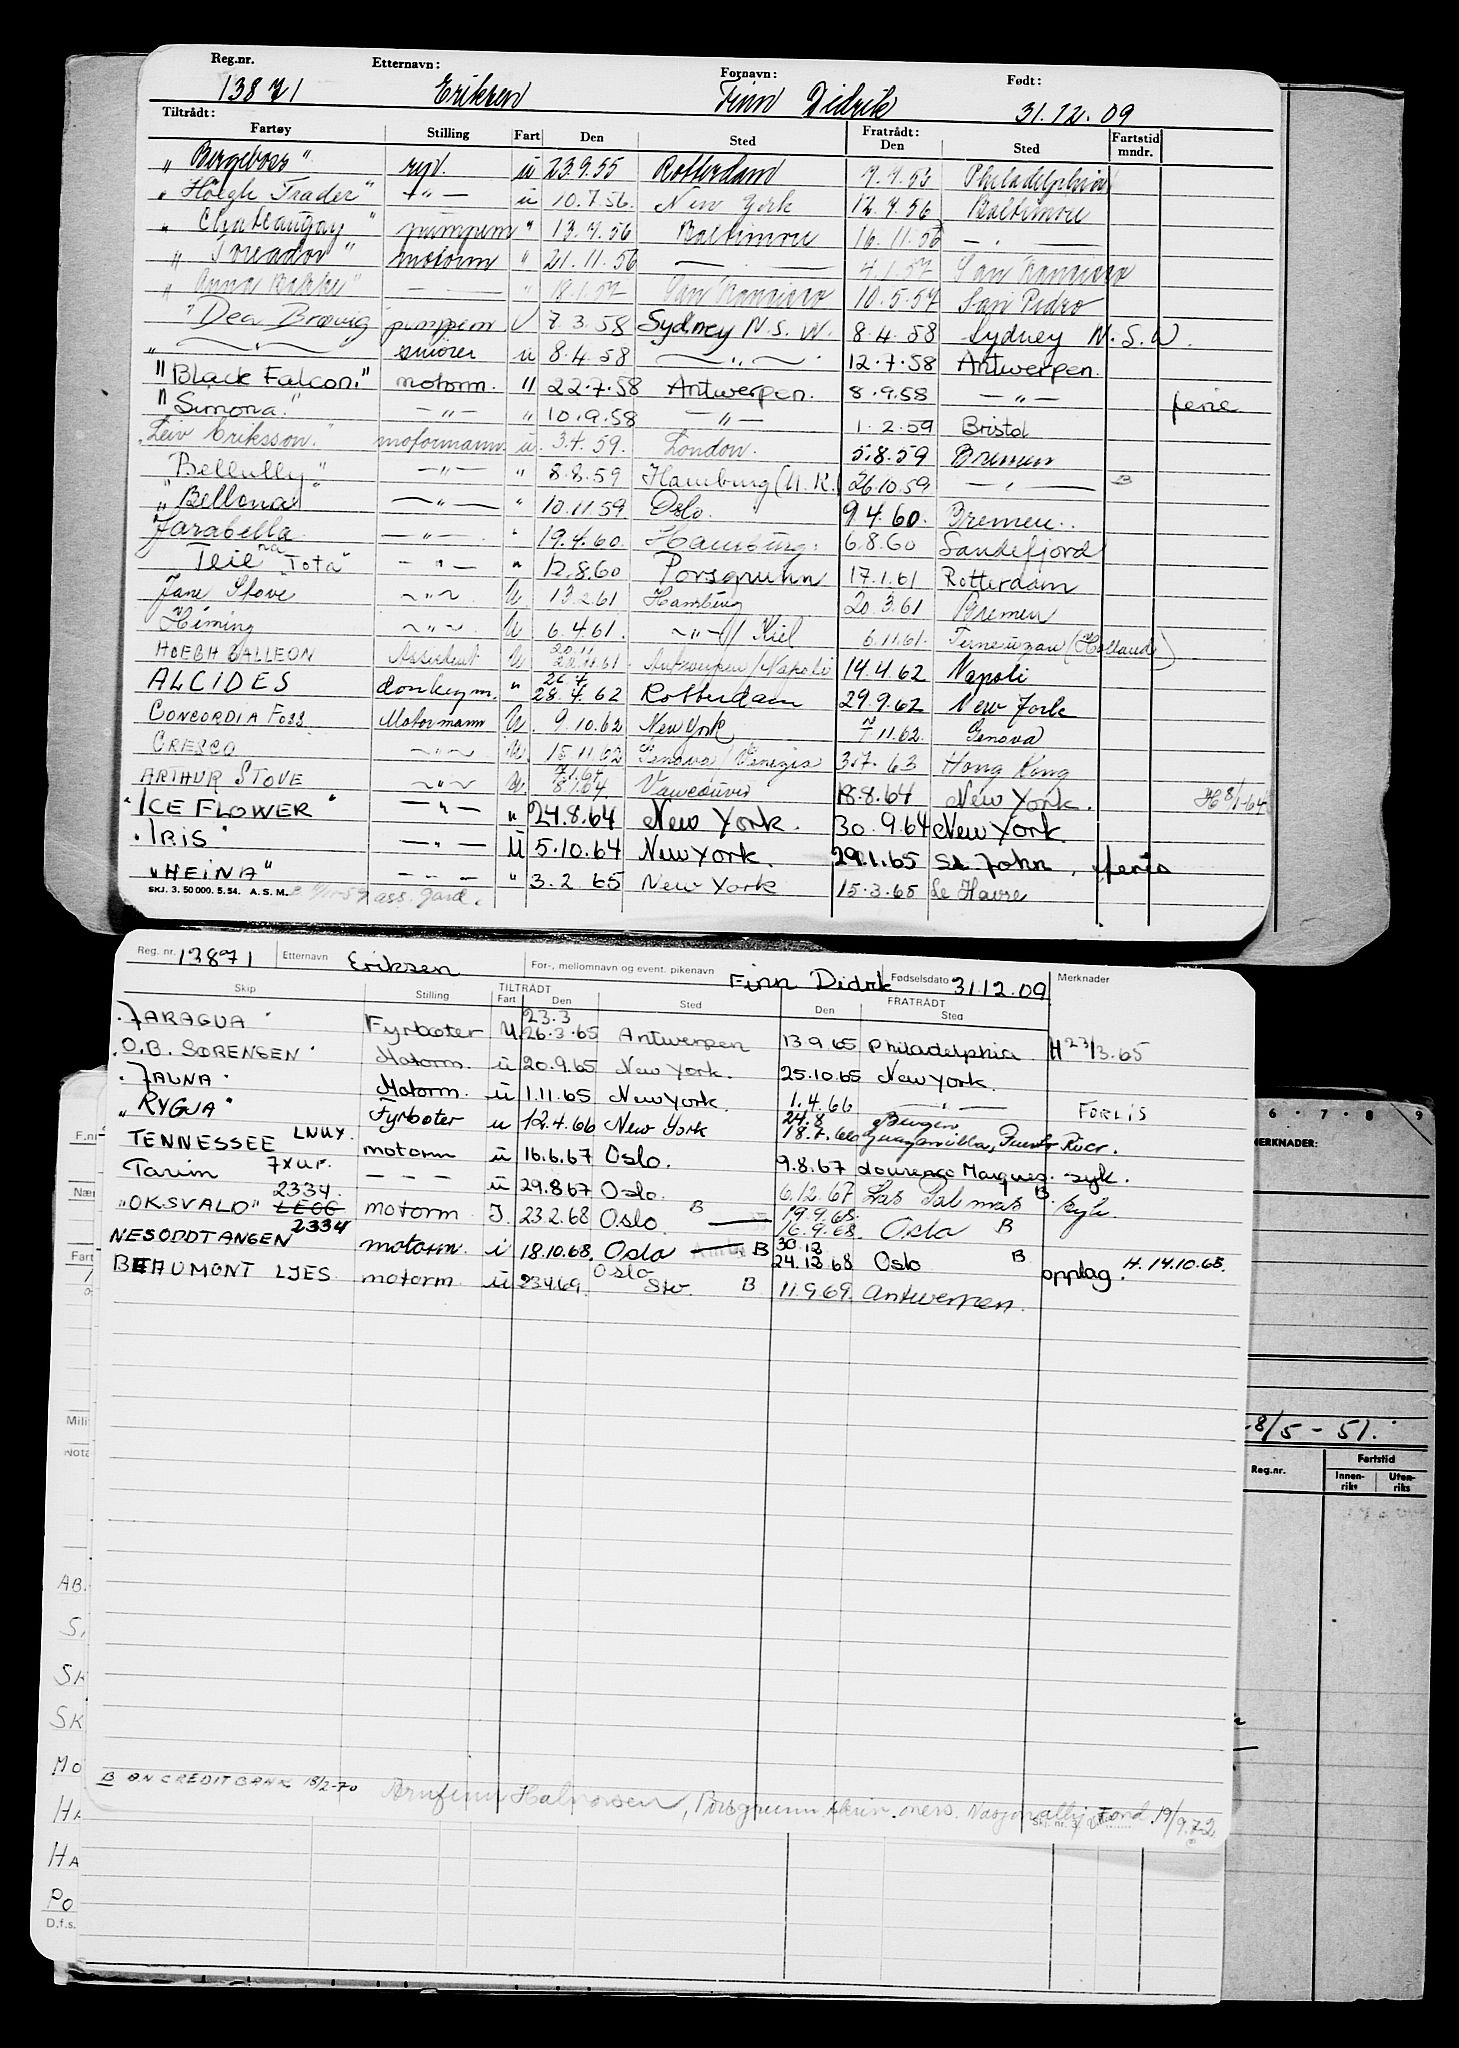 Reg.nr. Etternavn: Fornavn: Født:
13871 Eriksen Finn Didrik 31.12.09
Tiltrådt: Fratrådt: Fartstid
Fartøy Stilling Fart Den Sted Den Sted mndr.
"Bergeboss" ryd. u 23.9.55 Rotterdam Philadelphia
"Höegh Trader" — " — u 10.7.56. New York 12.7.56 Baltimore
" pumpem " 13.7.56 Baltimore 16.11.56 — " —
"Toreador" motorm " 21.11.56 — — 4.1.57 San Francisco
"Anna Bakke" — — " 18.1.57 San Francisco 10.5.57 San Pedro
"Dea Brøvig pumpem 7.3.58 Sydney N.S.W. 8.4.58 Sydney N.S.W.
" — " — smører u 8.4.58 — " — 12.7.58 Antwerpen.
"Black Falcon." motorm. " 22.7.58 Antwerpen. 8.9.58 — " — ferie
"Simona." — " — " 10.9.58 — " — 1.2.59 Bristol
"Leiv Eiriksson." motormann u. 3.4.59. London. 5.8.59 Bremen
"Bellully" — " — " 8.8.59 Hamburg (U.K.) 26.10.59 — " — B
"Bellona" — " — " 10.11.59 Oslo. 9.4.60. Bremen.
Jarabella — " — " 19.4.60. Hamburg. 6.8.60 Sandefjord
— " — " 12.8.60 Porsgrunn 17.1.61 Rotterdam
Jane Stove ~ " ~ U 13.2.61 Hamburg 20.3.61 Bremen
Heming ~ " ~ U 6.4.61. ~ " ~ / Kiel 6.11.61. Terneuzen (Holland)
HOEGH GALLEON Assistent U 20.11 Antwerpen / Napoli 14.4.62 Napoli
ALCIDES donkeym. " 26.4 28.4.62 Rotterdam 29.9.62 New York
CONCORDIA FOSS Motormann U. 9.10.62 New York 7.11.62. Genova
CRESCO ~ " ~ U. 15.11.62 Genova / Venezia 3.7.63 Hong Kong
ARTHUR STOVE ~ " ~ U. 7.1.64 8.1.64 Vancouver 18.8.64 New York. H 8/1-64
"ICE FLOWER" — " — " 24.8.64 New York. 30.9.64 New York
"IRIS" — " — U 5.10.64 New York. 29.1.65 St. John, ferie
"HEINA" — " — " 3.2.65 New York 15.3.65 Le Havre
SKJ. 3. 50 000. 5. 54. A. S. M. ass. gard.
Reg. nr. 13871 Etternavn Eriksen For-, mellomnavn og event. pikenavn Finn Didrk Fødselsdato 31.12.09 Merknader
TILTRÅDT FRATRÅDT
Skip Stilling Fart Den Sted Den Sted
"JARAGUA" Fyrbøter U. 23.3 26.3.65 Antwerpen 13.9.65 Philadelphia H 23/3.65
"O.B. SØRENSEN" Motorm. u 20.9.65 New York. 25.10.65 New York.
"JAUNA" Motorm. u 1.11.65 New York. 1.4.66 — " —
"RYGJA" Fyrbøter u 12.4.66 New York 24.8 18.7.66 Bergen, Guayanilla, Puerto Rico. FORLIS
TENNESSEE LNUY. motorm u 16.6.67 Oslo. 9.8.67 Lourenco Marques. syk.
Tarim 7XUF. — — — u 29.8.67 Oslo. 6.12.67 Las Palmas B. syk
"OKSVALD" 2334. motorm I. 23.2.68 Oslo B — 19.9.68. 16.9.68 Oslo B
NESODDTANGEN 2334 motorm. i 18.10.68. Oslo B 30.12 24.12.68 Oslo B opplag. H. 14.10.68.
BEAUMONT LJES motorm u 23.4.69. Oslo Stv. B 11.9.69. Antwerpen.
B DN CREDITBANK 18/2-70 Arnfinn Halvorsen, Porsgrunn, Nasjonalhj. Fond 19/9.72
Skj. nr. 3
F.nr
Nær
Fart
Mili
Nota
AB.
S.
SK
SK
MO
HA
HA
PO
D.f.s.
6 · 7 · 8 · 9
MERKNADER:
8/5 - 51.
Reg.nr. Fartstid
Innen-riks Uten-riks